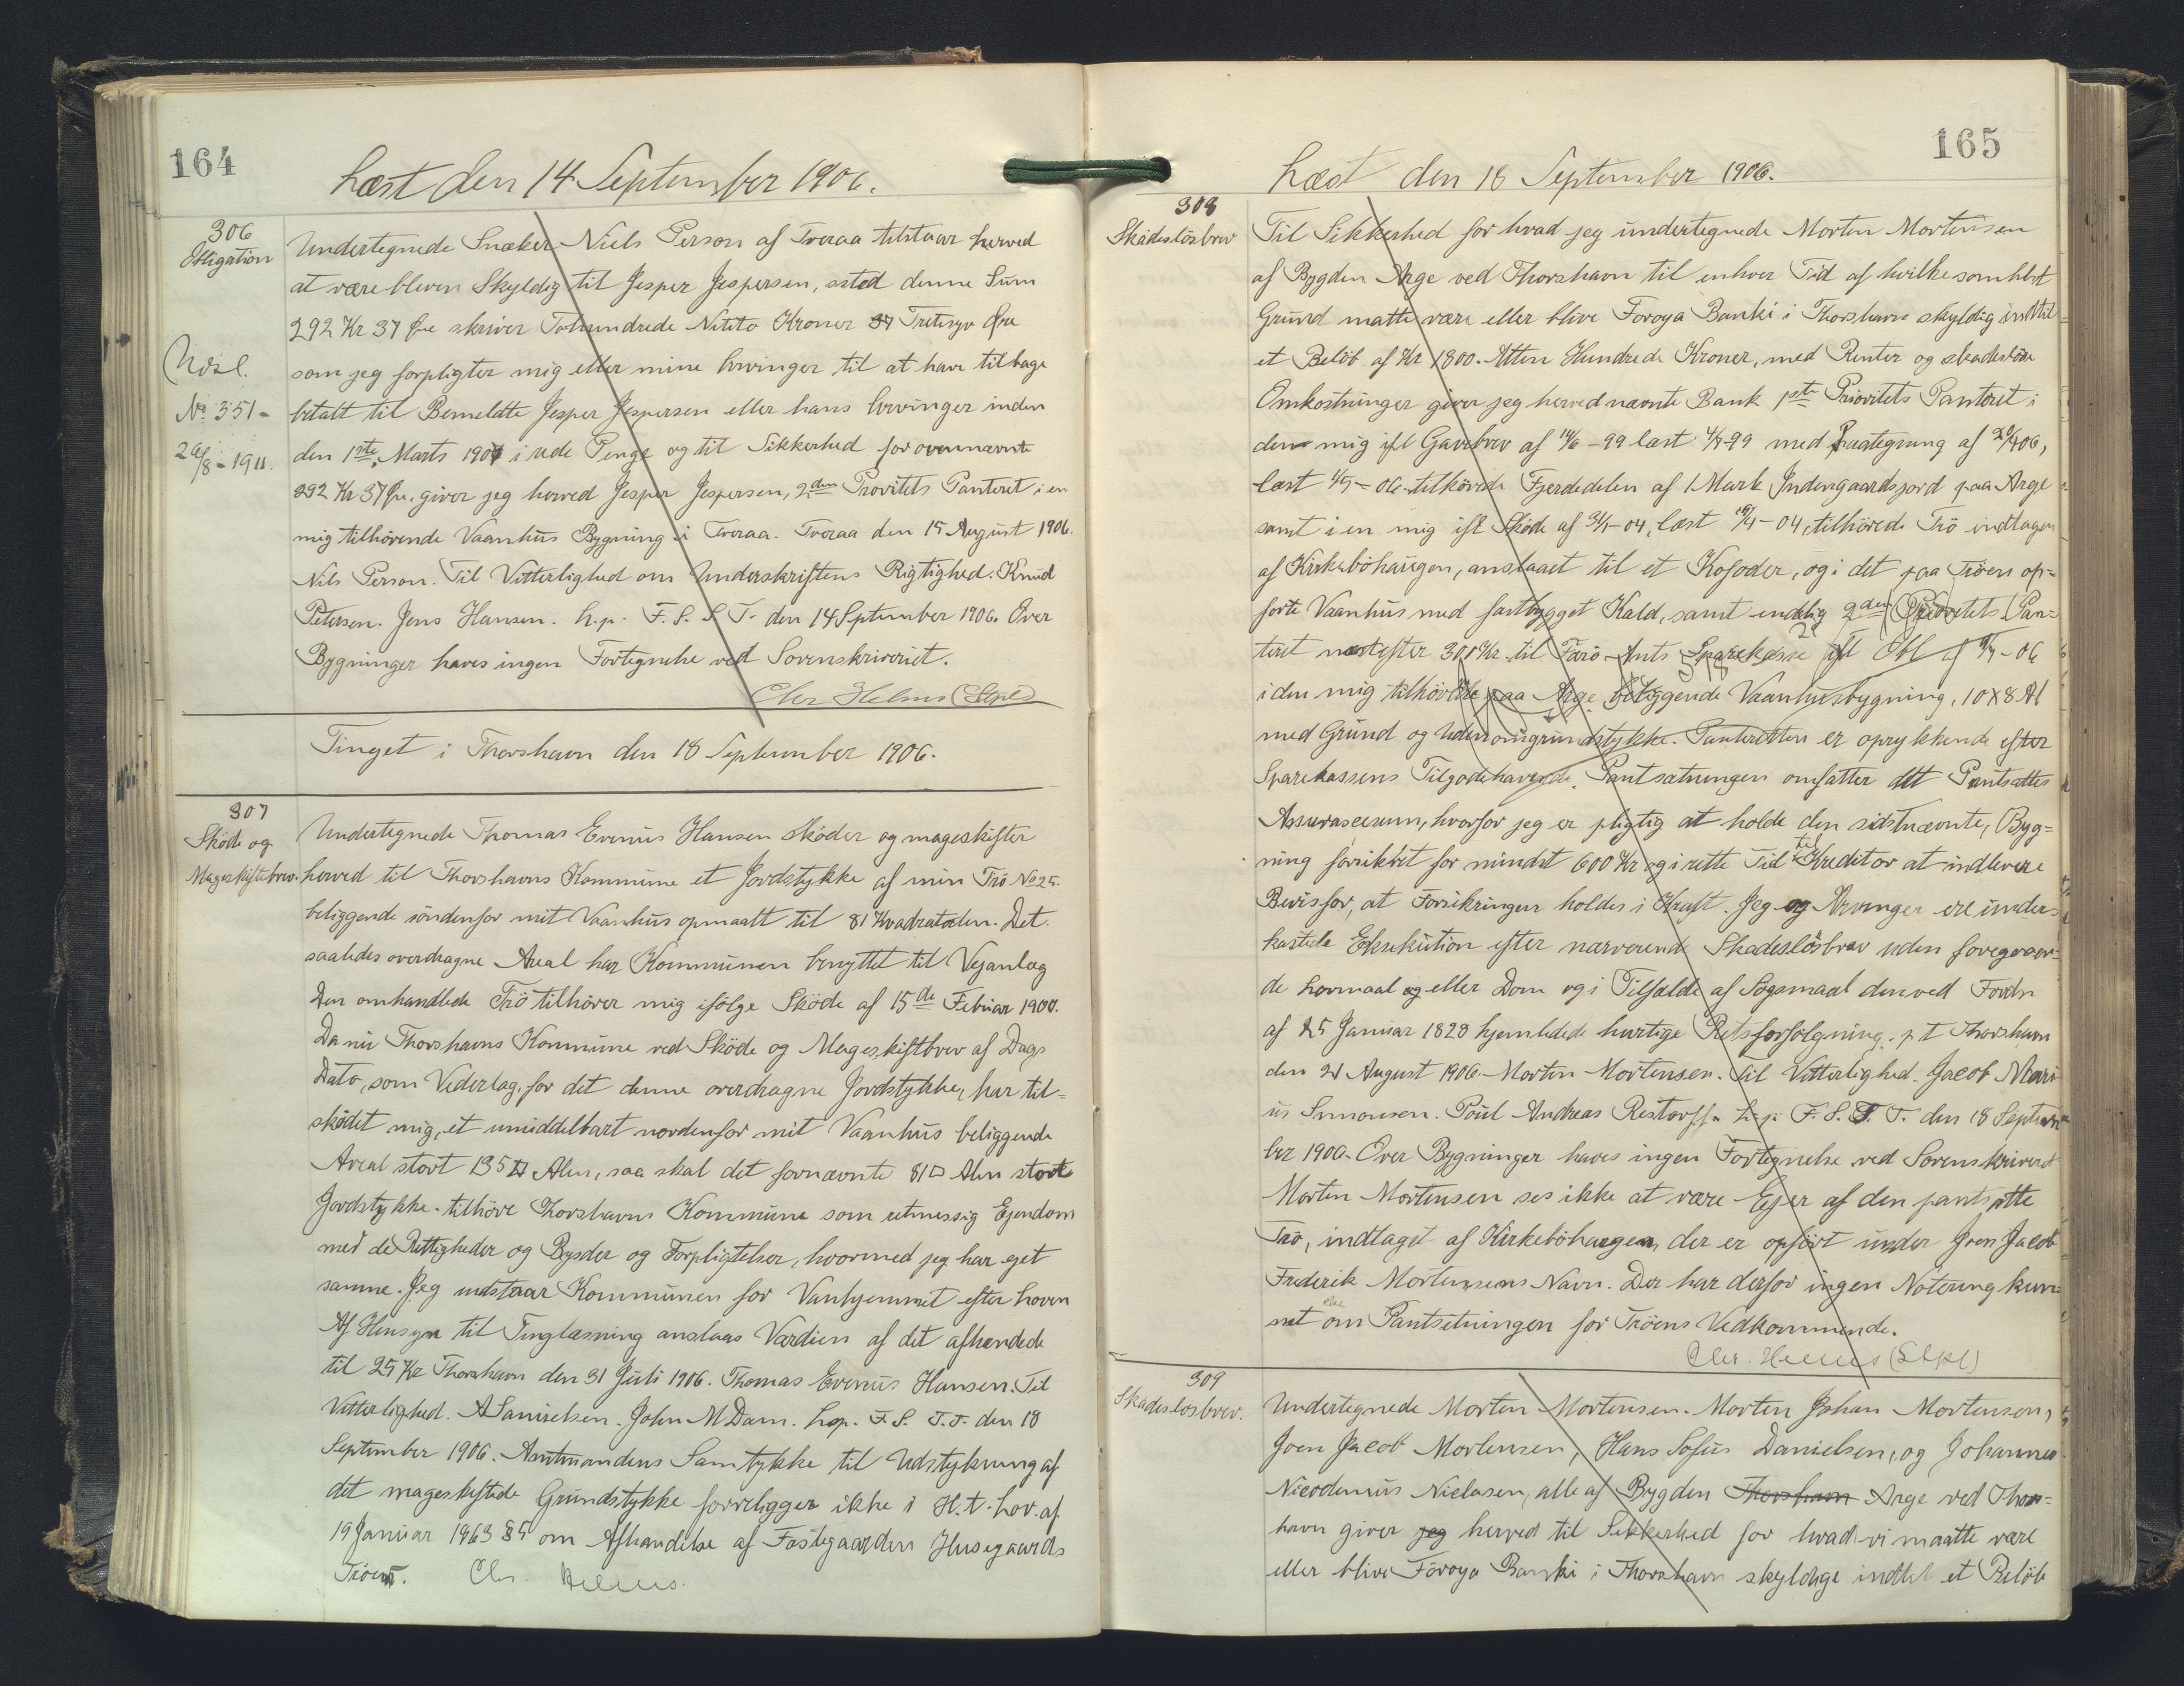 164
Læst den 14 September 1906.
306
Obligation
Undertegnede Snæker Niels Person af Tveraa tilstaar herved
at være bleven Skyldig til Jesper Jespersen,ssted denne Sum
292 Kr 37 Øre skriver Tohundrede Nitito Kroner 37 Tretisyv Øre
Udsl.
som jeg forpligter mig eller mine Arvinger til at have tilbage
No 351 -
betalt til Bemeldte Jesper Jespersen eller hans Arvinger inden
29/8 - 1911.
den 1ste Marts 1907 i rede Penge og til Sikkerhed for ovennævnte
292 Kr 37 Øre. giver jeg herved Jesper Jespersen, 2den Provitets Panteret i en
mig tilhörende Vaanhus Bygning i Tveraa. Tveraa den 15 August 1906.
Nils Person. Til Vitterlighed om Underskriftens Rigtighed. Knud
Petersen. Jens Hansen. L.p. F. S. S T. den 14 September 1906. Over
Bygninger haves ingen Fortegnelse ved Sorenskriveriet.
Chr Helms (Stpl)
Tinget i Thorshavn den 18 September 1906.
307
Sköde og
Mageskiftebrev.
Undertegnede Thomas Evenus Hansen sköder og mageskifter
herved til Thorshavns Kommune et Jordstykke af min Trö No 25.
beliggende söndenfor mit Vaanhus opmaalt til 81 Kvadratalen. Det
saaledes overdragne Areal har Kommunen benyttet til Vejanlæg
Den omhandlede Trö tilhörer mig ifölge Sköde af 15de Febuar 1900.
Da nu Thorshavns Kommune ved Sköde og Mageskiftbrev af Dags
Dato, som Vederlag, for det denne overdragne Jordstykke, har til=
sködet mig, et umiddelbart nordenfor mit Vaanhus beliggende
Areal stort 135 □ Alen, saa skal det fornævnte 81 □ Alen store
Jordstykke tilhöre Thorshavns Kommune som retmessig Ejendom
med de Rettigheder og Byrder og Forpligtelser, hvormed jeg har ejet
samme. Jeg indstaar Kommunen for Vanhjemmel efter Loven
Af Hensyn til Tinglæsning anslaas Værdien af det afhændede
til 25 Kr Thorshavn den 31 Juli 1906. Thomas Evenus Hansen. Til
Vitterlighed. A Samuelsen. John M Dam. L.p. F. S. S.T. den 18
September 1906. Amtmandens Samtykke til Udstykning af
det mageskiftede Grundstykke forreligger ikke i H.t. Lov af
19 Januar 1863 § 5 om Afhændelse af Fæstegaarden Husegaards
Tröen. Chr. Helms.
165
Læst den 18 September 1906.
308
Skadeslösbrev
Til Sikkerhed for hvad jeg undertegnede Morten Mortensen
af Bygden Arge ved Thorshavn til enhver Tid af hvilkesomhelst
Grund matte være eller blive Foroya Banki i Thorshavn skyldig indtil
et Belöb af Kr 1800. Atten Hundrede Kroner, med Renter og skadeslöse
Omkostninger giver jeg herved nævnte Bank 1ste Prioritets Panteret i
den mig ifl Gavebrev af 14/6 - 99 læst 4/7-99 med Paategning af 20/4 06,
læst 4/5 - 06 tilhörende Fjerdedelen af 1 Mark Indengaardsjord paa Arge
samt i en mig ifl Sköde af 31/1-04, læst 19/4-04, tilhörede Trö indtagen
af Kirkeböhaugen, anslaaet til et Kofoder, og i det paa Tröen op=
forte Vaanhus med fastbygget Kald, samt endelig 2den Prioritets Pan=
teret næstefter 300 Kr. til Færö Amts Sparekasse ifl Obl af 7/5 - 06
i den mig tilhörende paa Arge beliggende Vaanhusbygning, 10 X 8 Al
med Grund og Udenomsgrundstykke. Panteretten er oprykkende efter
Sparekassens Tilgodehavende. Pantsætningen omfatter det Pantsattes
Assurancesum, hvorfor jeg er pligtig at holde den sidstnævnte, Byg=
ning forsikret for mindst 600 Kr og i rette Tid til Kreditor at indlevere
Bevis for, at Forsikringen holdes i Kraft. Jeg og Arvinger ere under=
kastede Eksekution efter nærverende Skadeslösbrev uden foregaaen=
de Lovmaal og eller Dom og i Tilfælde af Sögsmaal den ved Fordn
af 25 Januar 1828 hjemlede hurtige Retsforfölgning. p t Thorshavn
den 21 August 1906. Morten Mortensen. Til Vitterlighed. Jacob Mari
us Simonsen. Poul Andreas Restorff. L.p. F. S. S. T. den 18 Septem
ber 1906. Over Bygninger haves ingen Fortegnelse ved Sorenskriveriet
Morten Mortensen ses ikke at være Ejer af den pantsatte
Trö, indtaget af Kirkeböhaugen, der er opfört under Joen Jacob
Frederik Mortensens Navn. Der har derfor ingen Notering kun=
net ske om Pantsetningen for Tröens Vedkommende.
Chr. Helms (Stpl)
309
Skadeslosbrev.
Undertegnede Morten Mortensen. Morten Johan Mortensen,
Joen Jacob Mortensen, Hans Sofus Danielsen, og Johannes
Nicodemus Nielasen, alle af Bygden Thorshavn Arge ved Thors=
havn giver jeg herved til Sikkerhed for hvad vi maatte være
eller blive Föroya Banki i Thorshavn skyldige indtil et Belöb